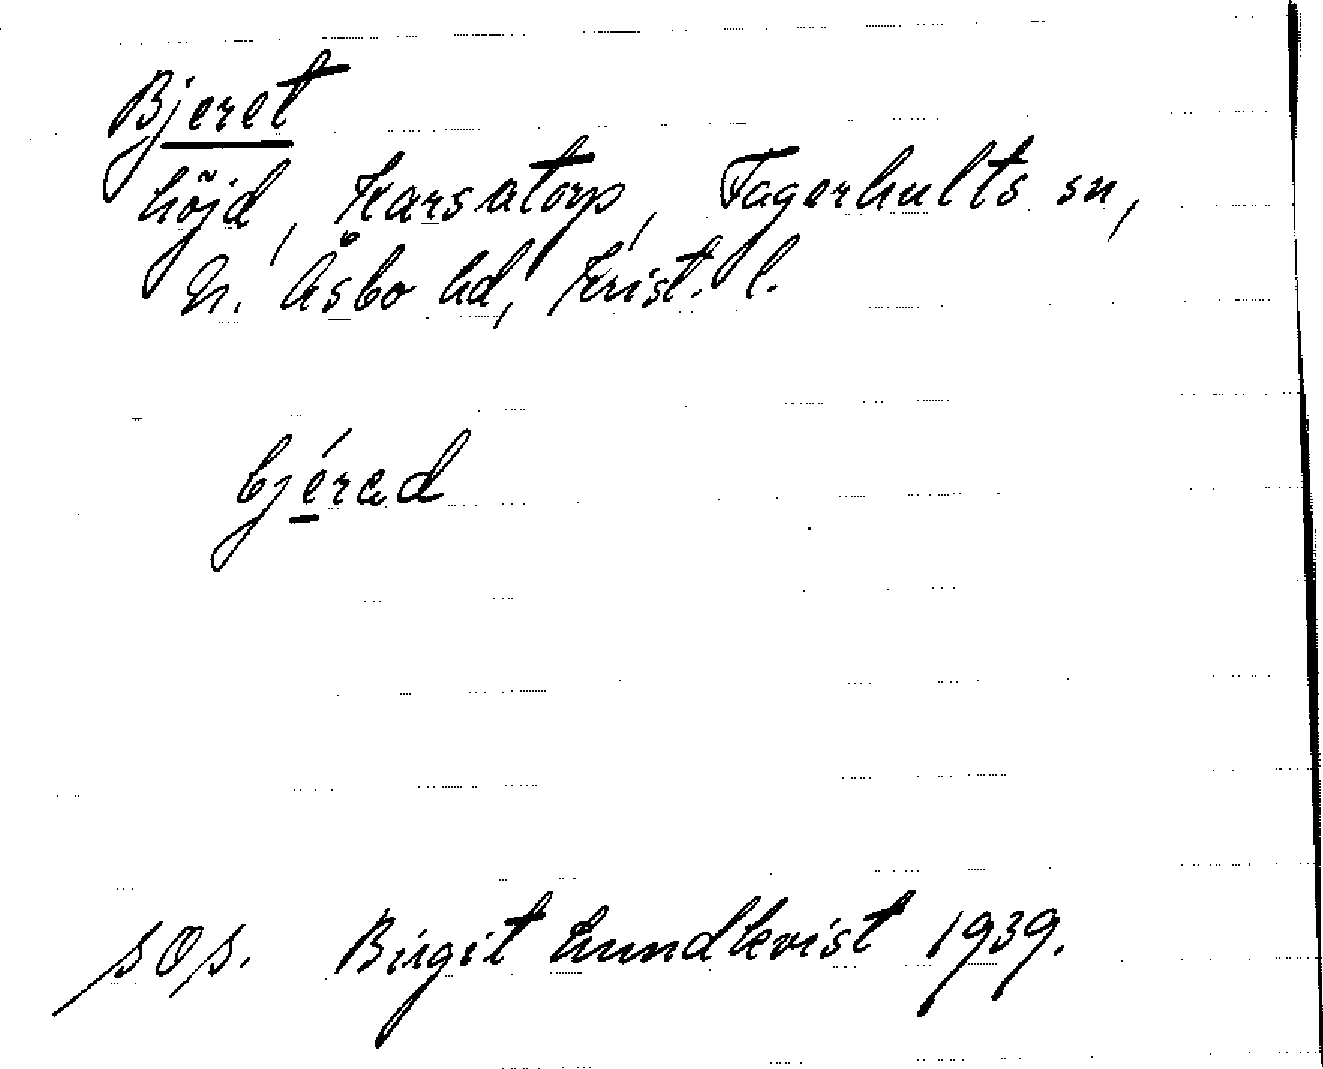 Bjeret
höjd, Karsatorp, Fagerhults sn,
N. Åsbo hd, Krist. l.
bjérad
sOs. Birgit Lundkvist 1939.